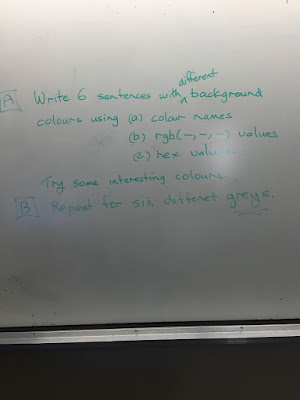 A Write 6 sentences with different background
colours using (a) colour names
(b) rgb(-,-,-) values
(c) hex values
Try some interesting colours...
B Repeat for six diffenet greys.